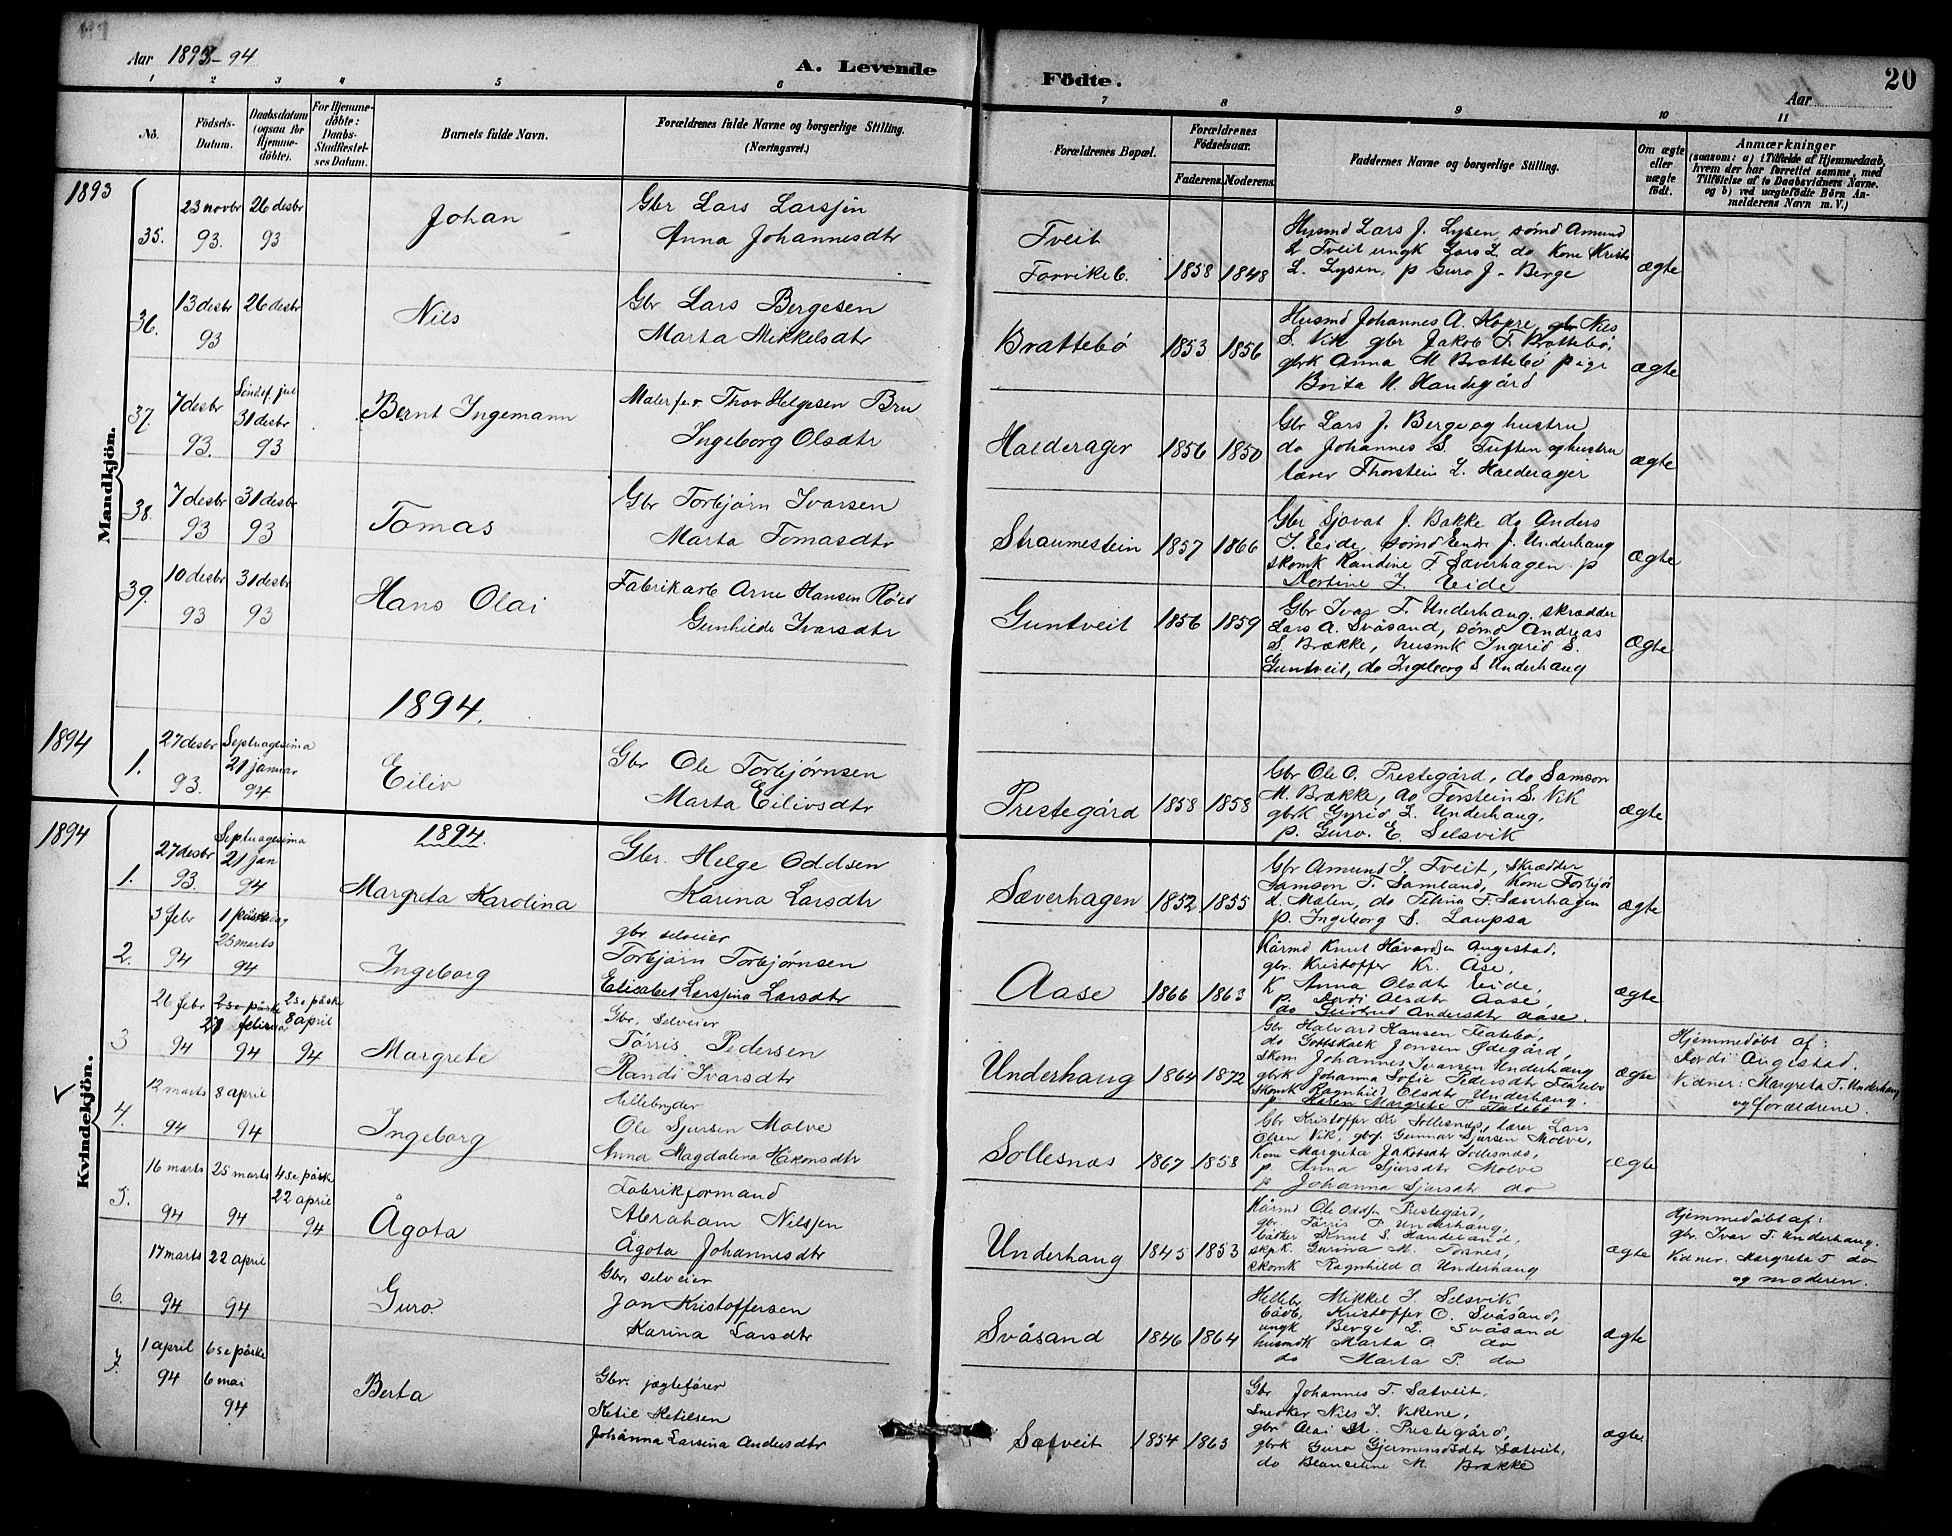 Aar 1893-94
A. Levende Födte.
20
Aar
1 2 3 4 5 6 7 8 9 10 11
No.
Födsels-Datum.
Daabsdatum (ogsaa for Hjemme-döbte).
For Hjemme-döbte: Daabs-Stadfæstel-ses Datum.
Barnets fulde Navn.
Forældrenes fulde Navne og borgerlige Stilling.
(Næringsvei.)
Forældrenes Bopæl.
Forældrenes Födselsaar.
Faderens. Moderens.
Faddernes Navne og borgerlige Stilling.
Om ægte eller uægte födt.
Anmærkninger
(saasom: a) i Tilfælde af Hjemmedaab,
hvem der har forrettet samme, med
Tilföielse af to Daabsvidners Navne.
og b) ved uægtefödte Börn An-
melderens Navn m. V.)
1893
Mandkjön.
35.
23 novbr 93.
26 desbr 93
Johan
Gbr Lars Larsen
Anna Johannesdtr
Tveit
Torvikb.
1858 1848
Husmd Lars J. Lysen, sømd Amund
L Tveit ungk Lars L. do Kone Kristi
L. Lysen, p Guro J. Berge
ægte
36.
13 desbr 93
26 desbr
Nils
Gbr Lars Bergesen
Marta Mikkelsdtr
Brattebö
1853 1856
Husmd Johannes A. Kopre, gbr Nils
S. Vik gbr Jakob T. Brattebö,
gbrk Anna M Brattebö pige
Brita N. Handegård
ægte
37.
7 desbr 93.
Sønd. e. jul
31 desbr 93
Bernt Ingemann
Thor Helgesen Bru
Ingeborg Olsdtr
Halderager
1856 1850
Gbr Lars J. Berge og hustru
do Johannes S. Tuften og hustru
lærer Thorstein L. Halderager
ægte
38.
7 desbr 93
31 desbr 93
Tomas
Gbr Torbjørn Ivarsen
Marta Tomasdtr
Straumestein
1857 1866
Gbr Sjovat J. Bakke do Anders
J. Eide, sømd Endre J. Underhaug
skomk Randine T. Sæverhagen p
J. Eide
ægte
39.
10 desbr 93
31 desbr 93
Hans Olai
Fabrikarb Arne Hansen Röed
Gunhilde Ivarsdtr
Guntveit
1856 1859
Gbr Ivar T. Underhaug, skrædder
Lars A. Svåsand, sømd Andreas
S. Brække, husmk Ingerid S.
Guntveit, do Ingeborg S Underhaug
ægte
1894.
1894
1.
27 desbr 93.
Septuagesima
21 januar 94.
Eiliv
Gbr Ole Torbjørnsen
Marta Eilivsdtr
Prestegård
1858 1858
Gbr Ole O. Prestegård, do Samson
M. Brække, do Torstein S. Vik
gbrk Gyrid L. Underhaug,
p. Guro E. Selsvik
ægte
1894
Kvindekjön.
1894.
1.
27 desbr 93.
Septuagesima
21 jan 94
Margreta Karolina
Gbr. Helge Oddsen
Karina Larsdtr
Sæverhagen
1852 1855
Gbr Amund J. Tveit, skrædder
Samson T. Samland, Kone Torbjør
d. Målen, do Telina T. Sæverhagen
p. Ingeborg S. Laupsa
ægte
2.
3 febr 94
1 påskedag
25 marts 94
Ingeborg
gbr selveier
Torbjørn Torbjørnsen
Elisabet Larsina Larsdtr
Aase
1866 1863
Kårmd Knut Håvardsen Augestad,
gbr. Kristoffer Kr. Åse,
K Anna Olsdtr Eide,
p. Olsdtr Aase,
do Andersdtr Aase.
ægte
3
26 febr 94
2se påske
28 februar 94
2se påsk
8 april 94
Margrete
Gbr. selveier
Tørris Pedersen
Randi Ivarsdtr
Underhaug
1864 1872
Gbr Halvard Hansen Flatebø,
do Gottskalk Jonsen Ødegård,
skom Johannes Ivarsen Underhaug
gbrk Johanna Sofie Pedersdtr Flatebø
skomk Ragnhild Olsdtr Underhaug.
p. Karen Margrete P. Flatebö
ægte
Hjemmedöbt af:
Augestad.
Vidner: Margreta T. Underhaug
og forældrene.
4.
12 marts 94
8 april 94
Ingeborg
Hellebryder
Ole Sjursen Molve
Anna Magdalena Håkonsdtr
Sollesnæs
1867 1858
Gbr Kristoffer Sollesnæs, lærer Lars
Olsen Vik, gbrf. Gunnar Sjursen Molve,
Kone Margreta Jakobsdtr Sollesnæs,
p. Anna Sjursdtr Molve
p Johanna Sjursdtr do
ægte
5.
16 marts 94
25 marts 94
4se påsk
22 april 94
Ågota
Fabrikformand
Abraham Nilsen
Ågota Johannesdtr
Underhaug
1845 1853
Kårmd Ole Oddsen Prestegård,
gbr. Tørris P. Underhaug,
bødker Knut S. Handeland,
Gurina M. Tosnes,
skomk Ragnhild O Underhaug
ægte
Hjemmedöbt af:
gbr. Ivar T. Underhaug.
Vidner: Margreta T do
og moderen.
6.
17 marts 94
22 april 94
Guro
Gbr, selveier
Jon Kristoffersen
Karina Larsdtr
Svåsand
1846 1864
Hellebr Mikkel J. Selsvik
Kristoffer O. Svåsand,
ungk Berge L. Svåsand
husmdk Marta O. do
do Marta P. do
ægte
7.
1 april 94
6se påske
6 mai 94
Berta
Gbr. jægtefører
Ketil Ketilsen
Johanna Larsina Andersdtr
Sætveit
1854 1863
Gbr Johannes T. Sætveit,
Snedker Nils J. Vikene,
gbr Olai M. Prestegård,
gbrk Guro Gjermundsdtr Sætveit,
do M. Brække
ægte